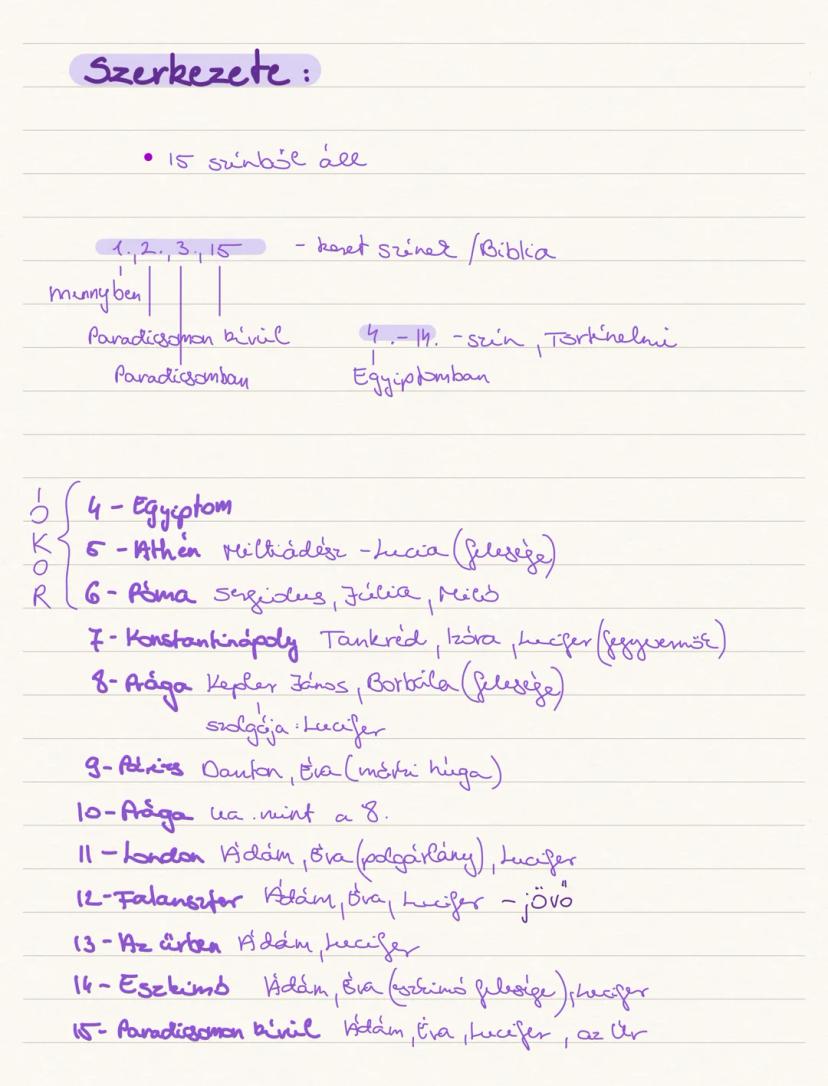 Szerkezete :
• 15 színből áll
1., 2., 3., 15 - keret színek / Biblia
mennyben
Paradicsomon kívül 4.-14. - szín, Történelmi
Paradicsomban Egyiptomban
ÓKOR
4 - Egyiptom
5 - Athén Miltiádész - Lucia (felesége)
6 - Róma Sergiolus, Júlia, Miló
7 - Konstantinápoly Tankréd, Izóra, Lucifer (fegyvernök)
8 - Prága Kepler János, Borbála (felesége)
szolgája : Lucifer
9 - Párizs Danton, Éva (márki húga)
10 - Prága ua. mint a 8.
11 - London Ádám, Éva (polgárlány), Lucifer
12 - Falanszter Ádám, Éva, Lucifer - jövő
13 - Az űrben Ádám, Lucifer
14 - Eszkimó Ádám, Éva (eszkimó felesége), Lucifer
15 - Paradicsomon kívül Ádám, Éva, Lucifer, az Úr